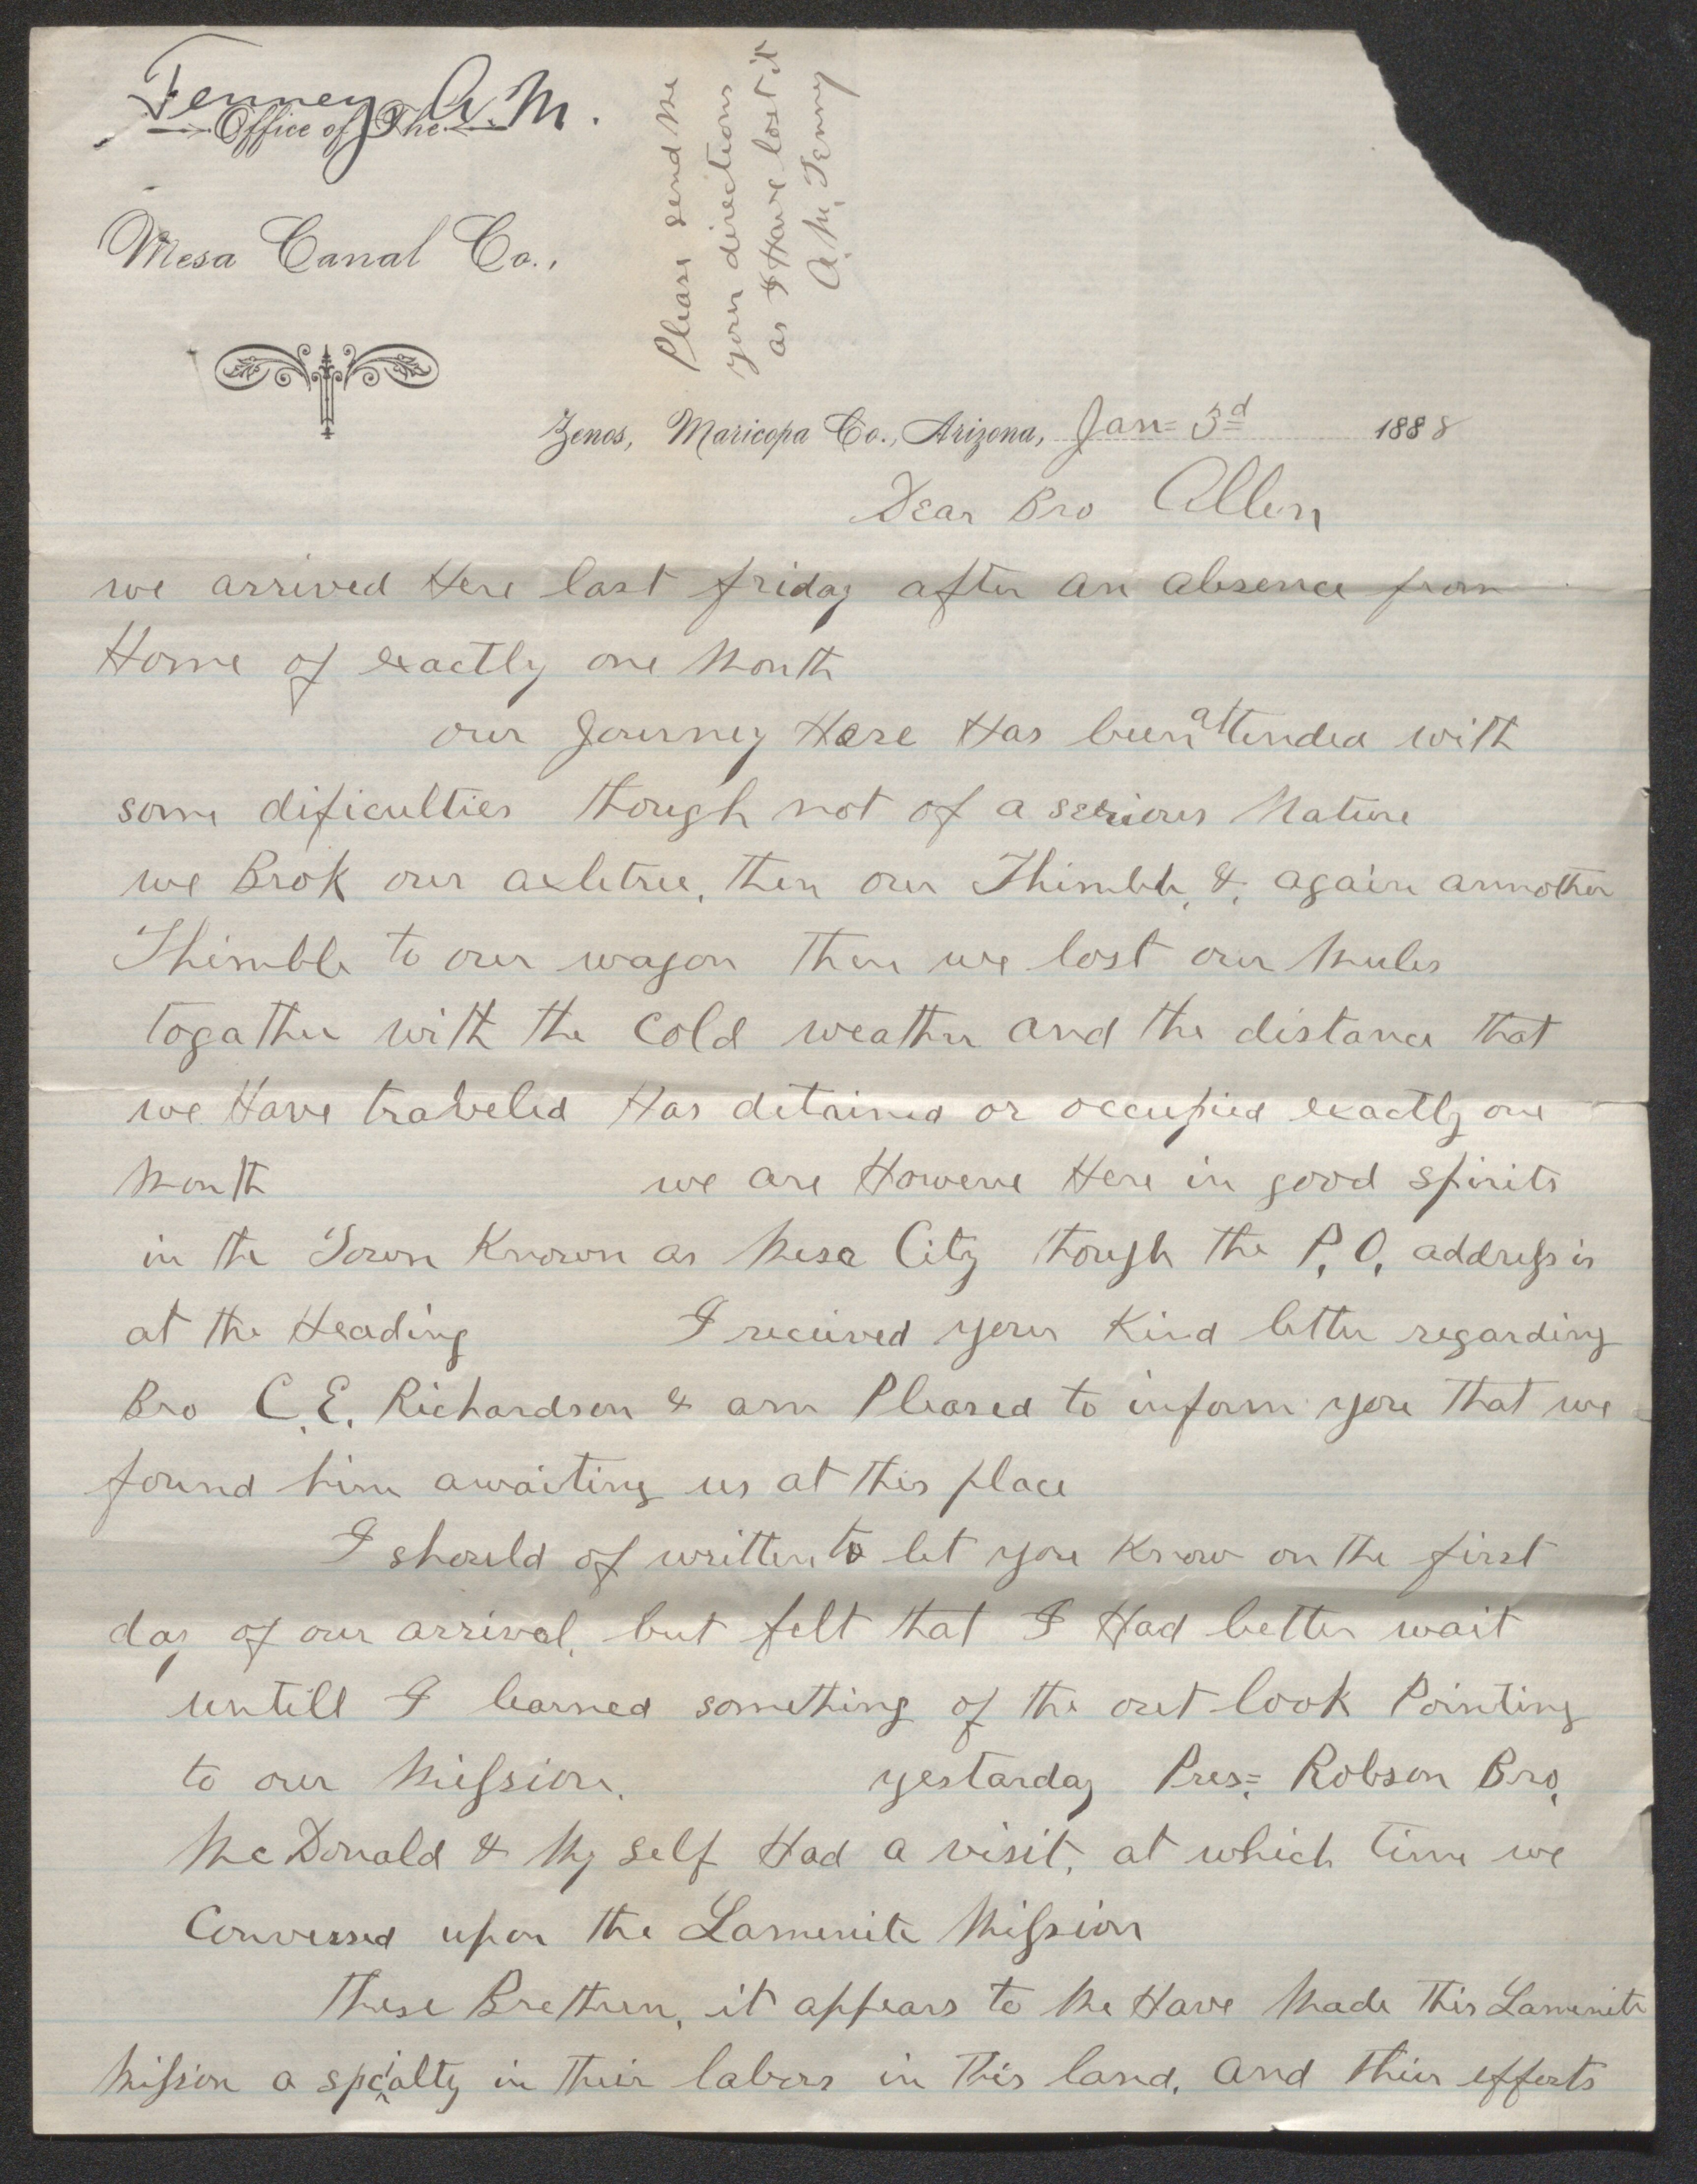 Tenney, A. M.
Office of The
Mesa Canal Co.,
Please send me
your directions
as I Have lost it
A. M. Tenny
Zenos, Maricopa Co., Arizona, Jan= 3d 1888
Dear Bro Allen
we arrived Here last friday after an absence from
Home of exactly one Month
our Journey Here Has been attended with
some dificulties though not of a serious Nature
we Brok our axletree, then our Thimble, & again annother
Thimble to our wagon then we lost our Mules
togather with the Cold weather and the distance that
we Have traveled Has detained or occupied exactly one
Month we are Howeve Here in good spirits
in the Town Known as Mesa City though the P, O, address is
at the Heading I received your Kind letter regarding
Bro C. E. Richardson & am Pleased to inform you that we
found him awaiting us at this place
I should of written to let you Know on the first
day of our arrival, but felt that I Had better wait
untill I learned something of the out look Pointing
to our Mission. yestarday Pres= Robson Bro,
McDonald & My self Had a visit, at which time we
Conversed upon the Lamenite Mission
These Brethren, it appears to Me Have Made this Lamenite
Mission a spcialty in their labors in this land, and their efforts